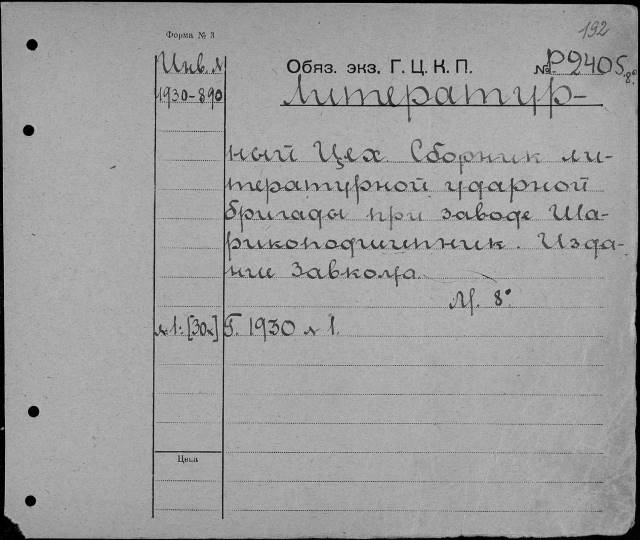 192
Форма № 3
Инв. №
Обяз. экз. Г. Ц. К. П. № Р2405 8°
1930-890
Литератур-
ный Цех. Сборник ли-
тературной ударной
бригады при заводе Ша-
рикоподшипник. Изда-
ние Завкома.
М. 8°
№1. [30к] Г. 1930 №1.
Цена